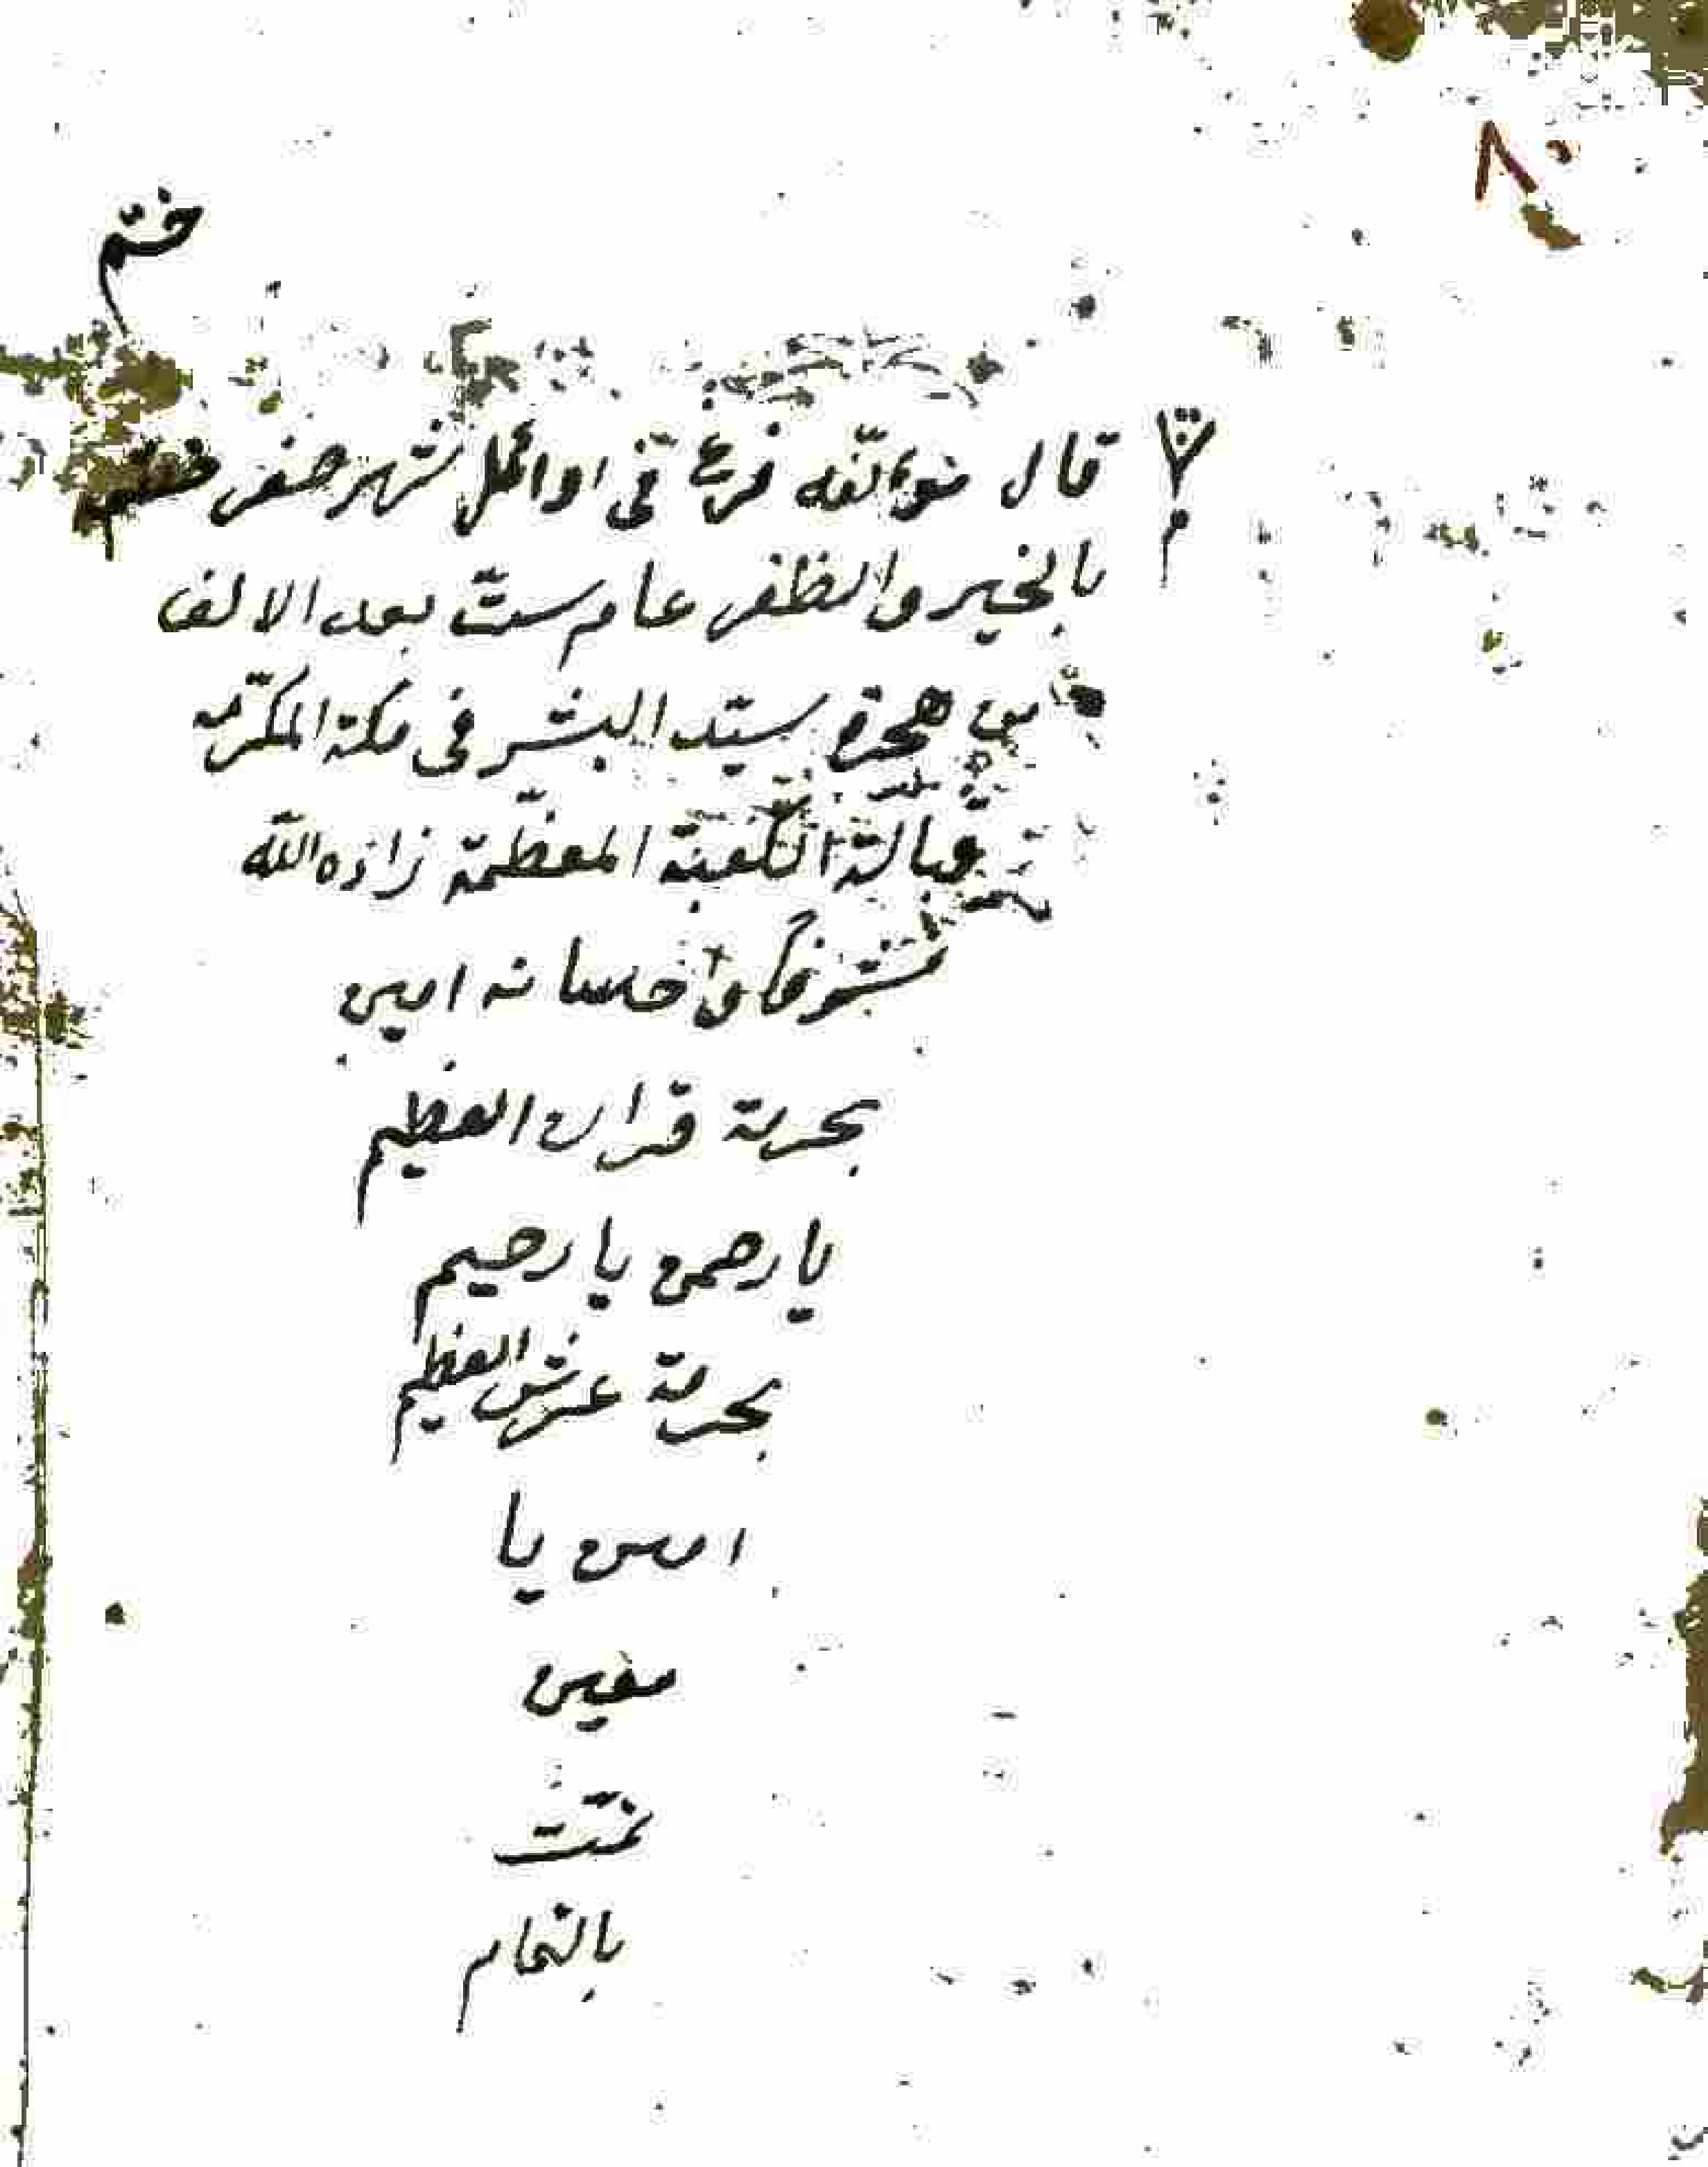 ٨٠
ختم
قال مؤلفه فرغ في اوائل شهر صفر ختم
بالخير والظفر عام ست بعد الالف
من هجرة سيد البشر في مكة المكرمه
قبالة الكعبة المعظمة زاده الله
شرفا واحسانه امين
بحرمة قران العظيم
يا رحمن يا رحيم
بحرمة عرش العظيم
امين يا
معين
تمت
بالتمام